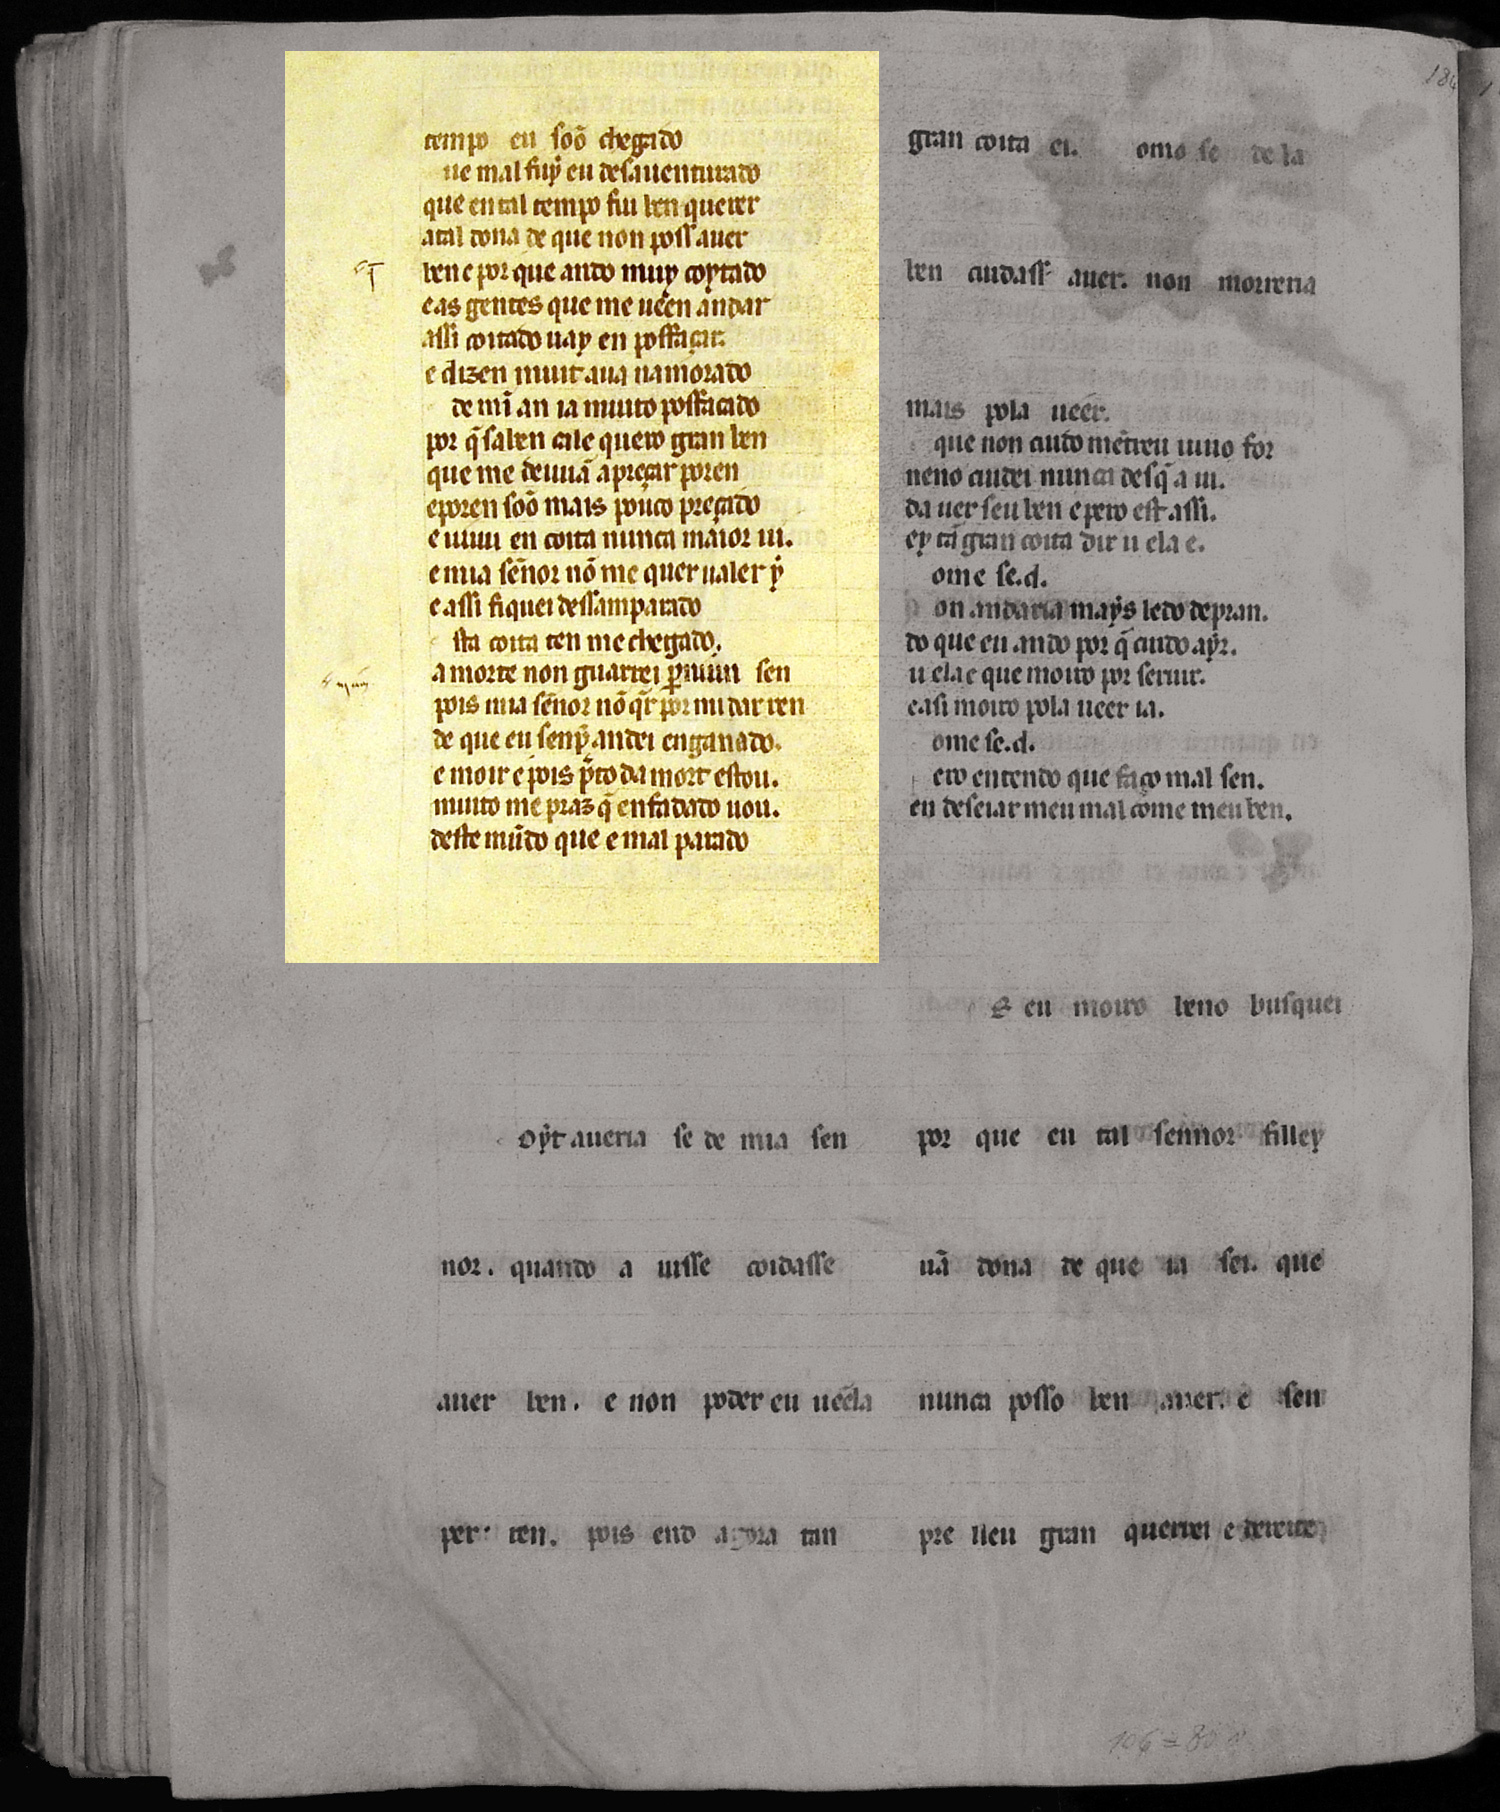 tempo eu soõ chegado
ue mal fuẏ eu desauenturado
que en tal tempo fui ben querer
atal dona de que non poss auer
ben e por que ando muy coytado
e as gentes que me ueen andar
assi coitado uay en posfaçar.
e dizen muit aua namorado
de mi an ia muito posfaçado
por q̃ saben ca lle quero gran ben
que me deuiã a preçar poren
e poren soõ mais pouco preçado
e uiuu en coita nunca maior ui.
e mia señor nõ me quer ualer ẏ
e assi fiquei dessamparado
sta coita ten me chegado.
a morte non guarrei per niun sen
pois mia señor nõ q̃r por mi dar ren
de que eu senp̃ andei enganado.
e moir e pois p̃to da mort estou.
muito me praz q̃ enfadado uou.
deste mũdo que e mal parado
oẏt aueria se de mia sen
nor. quando a uisse coidasse
auer ben. e non poder eu ueela
per ren. pois end agora tan
gran coita ei. ome se de la
ben cuidass auer. non morreria
mais pola ueer.
que non cuido mẽtreu uiuo for
neno cuidei nunca desq̃ a ui.
da uer seu ben e pero est assi.
ey tã gran coita dir u ela e.
ome se.d.
on andaria maẏs ledo de pran.
do que eu ando por q̃ cuido aẏr.
u ela e que moiro por seruir.
e asi moiro pola ueer ia.
ome se.d.
ero entendo que faço mal sen.
en deseiar meu mal come meu ben.
S eu moiro beno busquei
por que eu tal sennor filley
uã dona de que ia sei. que
nunca posso ben auer. e sen
pre lleu gran querrei e
184
106 = 80